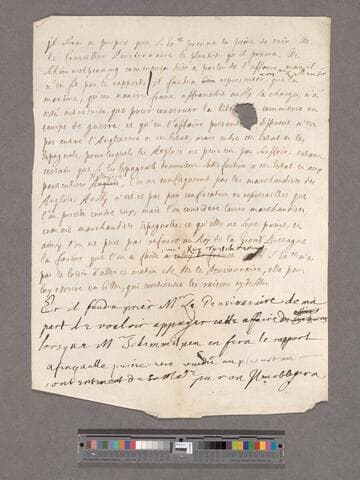 il sera a propos que S. Ex. prenne la peine de voir Mr
le Conseiller Pensionnaire le plustost qu'il pourra. Mr
Schimmelpenning commença hier a parler de l'affaire, mais il
n'en fit pas le rapport, il faudra luy representer que la
maxime, qu'un navire franc affranchit aussy la charge, n'a
esté inventée que pour conserver la liberté commerce en
temps de guerre, et qu'en l'affaire presente different n'est
pas entre l'Angleterre et cet Estat, mais entre cet Estat et les
Espagnols, pour lesquels les Anglois ne peuvent pas souffrir. estant
certain que si les Espagnols donnoient satisfaction a cet Estat et aux
particuliers l'on ne confisqueroit pas les marchandises des
Anglois. Aussy n'est ce pas par confiscation et represailles que
l'on procede contre eux, mais l'on considere leurs marchandises
comme marchandises Espagnoles, ce qu'elles ne sont point, et
ainsy l'on ne peut pas refuser au Roy de la grand Bretagne
la faveur que l'on a faite
pas le loisir d'aller ce matin chez Mr le Pensionnaire, elle peut
luy escrire un billet, qui contienne les raisons cy dessus.
Et il faudra prier Mr Le Pensionaire de ma
part de vouloir appuyer cette affaire
lorsque Mr en fera le rapport
afin qu'elle puisse estre vuidée au
contentement de sa Maté.